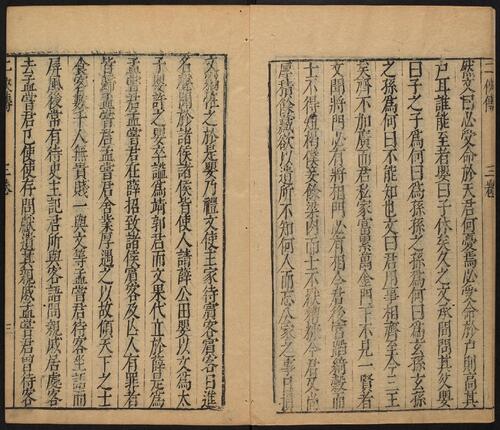 二俠傳 三卷
默文曰必受命於天君何憂焉必受命於戶則高其
戶耳誰能至者嬰曰子休矣久之文承間問其父嬰
曰子之子為何曰為孫孫之孫為何曰為玄孫玄孫
之孫為何曰不能知也文曰君用事相齊至今三王
矣齊不加廣而君私家富累萬金門下不見一賢者
文聞將門必有將相門必有相今君後宮蹈綺縠而
士不得短褐僕妾餘粱肉而士不厭糟糠今君又尚
厚積餘藏欲以遺所不知何人而忘公家之事日損
文竊怪之於是嬰乃禮文使主家待賓客賓客日進
名聲聞於諸侯諸侯皆使人請薛公田嬰以文為太
子嬰許之嬰卒諡為靖郭君而文果代立於薛是為
孟嘗君孟嘗君在薛招致諸侯賓客及亡人有罪者
皆歸孟嘗君孟嘗君舍業厚遇之以故傾天下之士
食客數千人無貴賤一與文等孟嘗君待客坐語而
屏風後常有侍史主記君所與客語問親戚居處客
去孟嘗君已使使存問獻遺其親戚孟嘗君曾待客
二俠傳 三卷